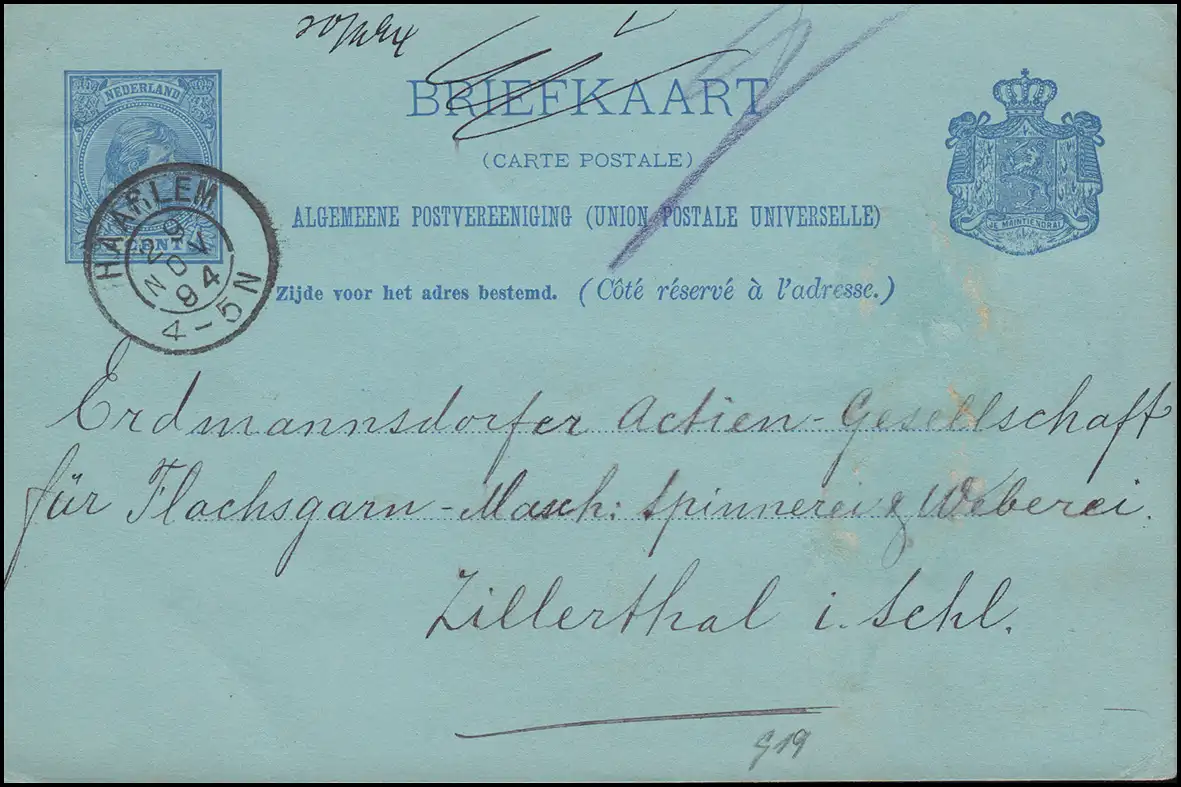 NEDERLAND
CENT
HAARLEM
29
NOV
94
4-5N
BRIEFKAART
(CARTE POSTALE)
ALGEMEENE POSTVEREENIGING (UNION POSTALE UNIVERSELLE)
Zijde voor het adres bestemd. (Côté réservé à l'adresse.)
JE MAINTIENDRAI
Erdmannsdorfer Actien-Gesellschaft
für Flachsgarn-Masch: Spinnerei & Weberei.
Zillerthal i. Schl.
G19